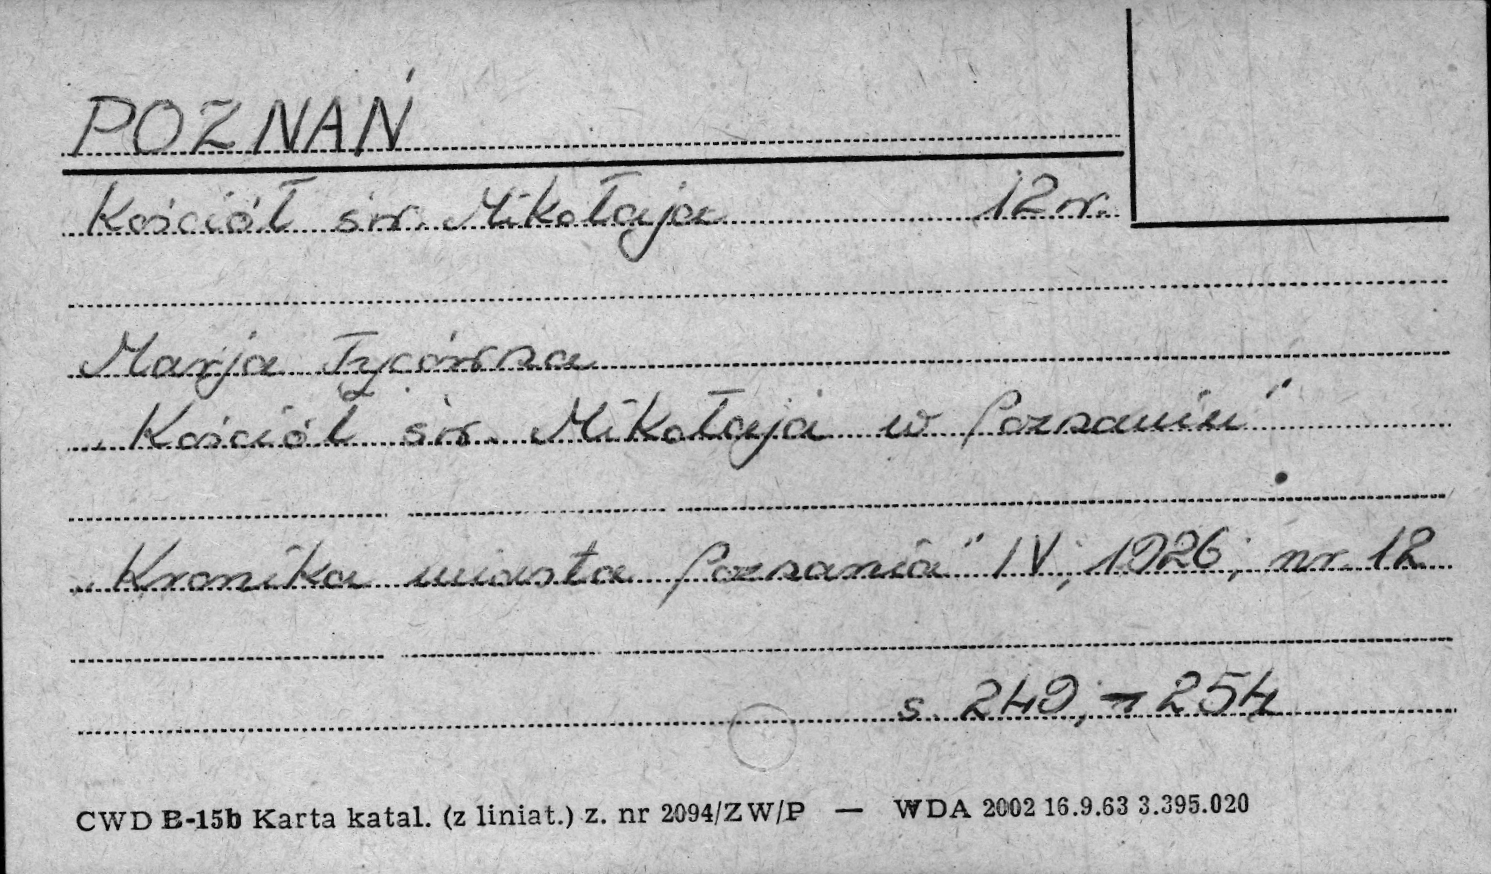 POZNAŃ
Kościół św. Mikołaja 12 w.
Marja Tycówna
„Kościół św. Mikołaja w Poznaniu"
„Kronika miasta Poznania" IV, 1926, nr. 12
s. 249, - 254
CWD B-15b Karta katal. (z liniat.) z. nr 2094/ZW/P — WDA 2002 16.9.63 3.395.020